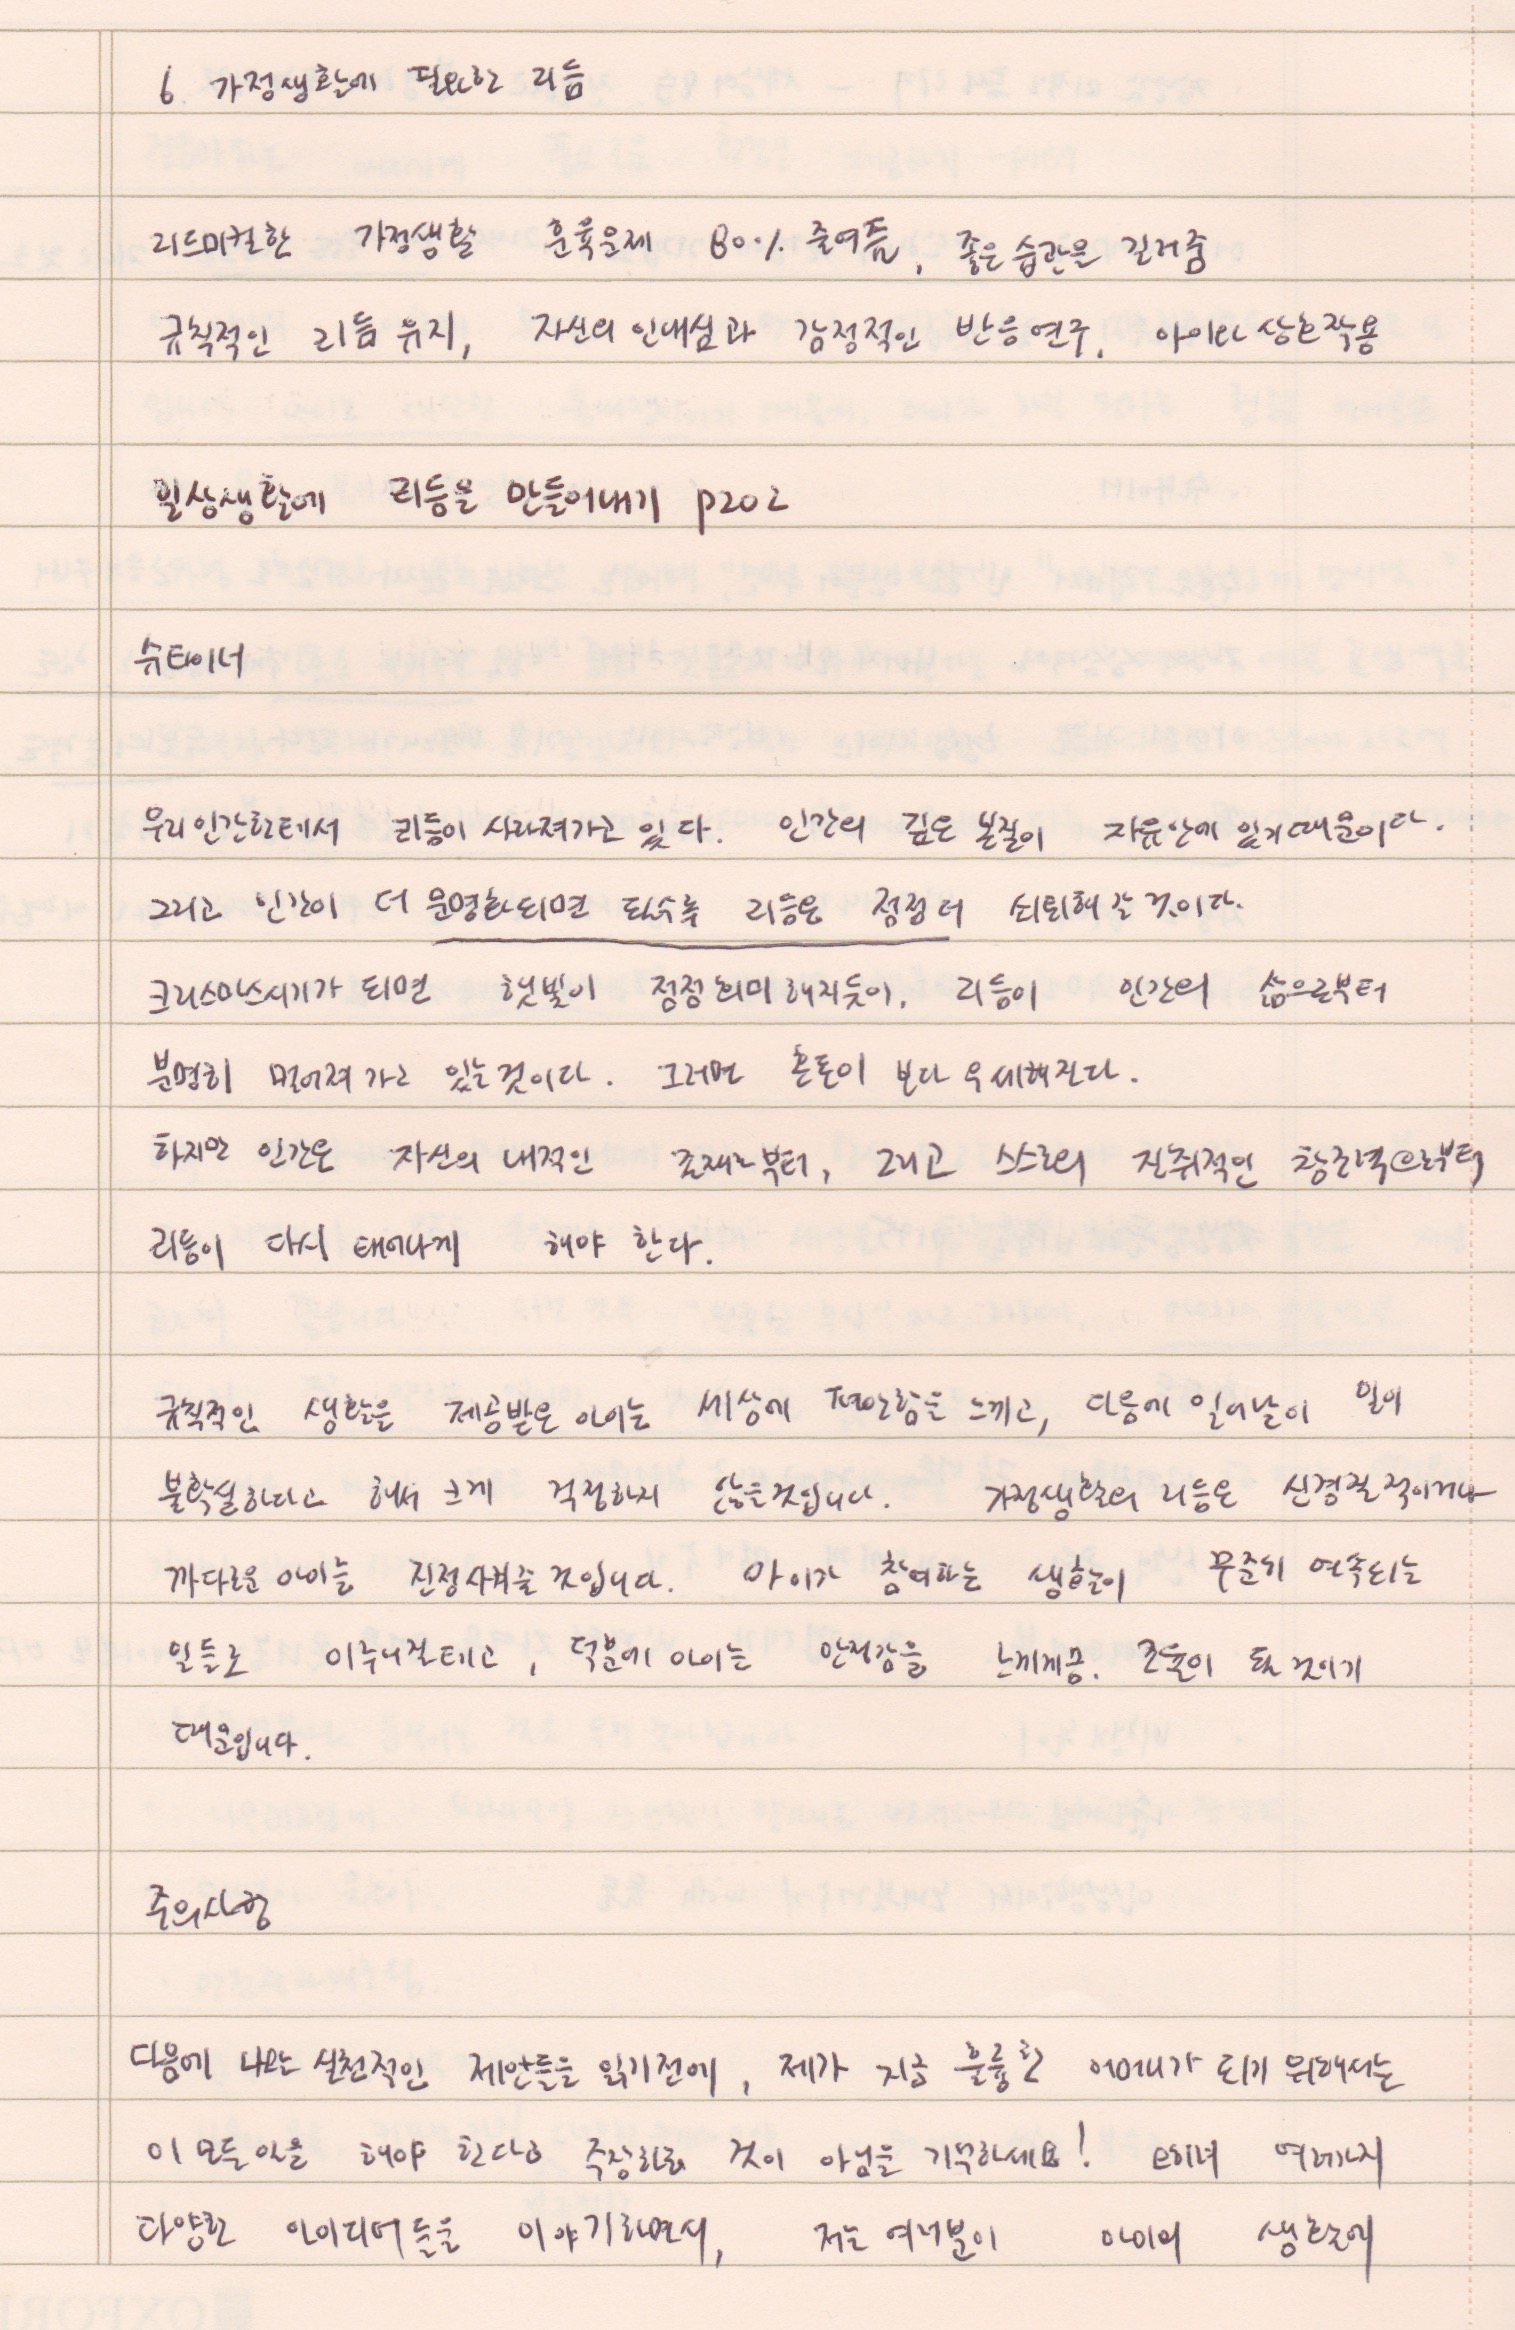 6. 가정생활에 필요한 리듬
리드미컬한 가정생활 훈육문제 80% 줄여줌, 좋은 습관을 길러줌
규칙적인 리듬 유지, 자신의 인내심과 감정적인 반응연주. 아이와 상호작용
일상생활에 리듬을 만들어내기 p202
슈타이너
우리 인간한테서 리듬이 사라져가고 있다. 인간의 깊은 본질이 자유안에 있기 때문이다.
그리고 인간이 더 문명화되면 될수록 리듬은 점점 더 쇠퇴해 갈 것이다.
크리스마스시기가 되면 햇빛이 점점 희미해지듯이, 리듬이 인간의 삶으로부터
분명히 멀어져 가고 있는 것이다. 그러면 혼돈이 보다 우세해진다.
하지만 인간은 자신의 내적인 존재로부터, 그리고 스스로의 진취적인 창조력으로부터
리듬이 다시 태어나게 해야 한다.
규칙적인 생활을 제공받은 아이는 세상에 편안함을 느끼고, 다음에 일어날 일이
불확실하다고 해서 크게 걱정하지 않을것입니다. 가정생활의 리듬은 신경질적이거나
까다로운 아이를 진정시켜줄 것입니다. 아이가 참여하는 생활이 꾸준히 연속되는
일들로 이루어질테고, 덕분에 아이는 안정감을 느끼게끔. 조율이 될 것이기
때문입니다.
주의사항
다음에 나오는 실천적인 제안들을 읽기전에, 제가 지금 훌륭한 어머니가 되기 위해서는
이 모든 일을 해야 한다고 주장하는 것이 아님을 기억하세요! 오히려 여러가지
다양한 아이디어들을 이야기하면서, 저는 여러분이 아이의 생활에